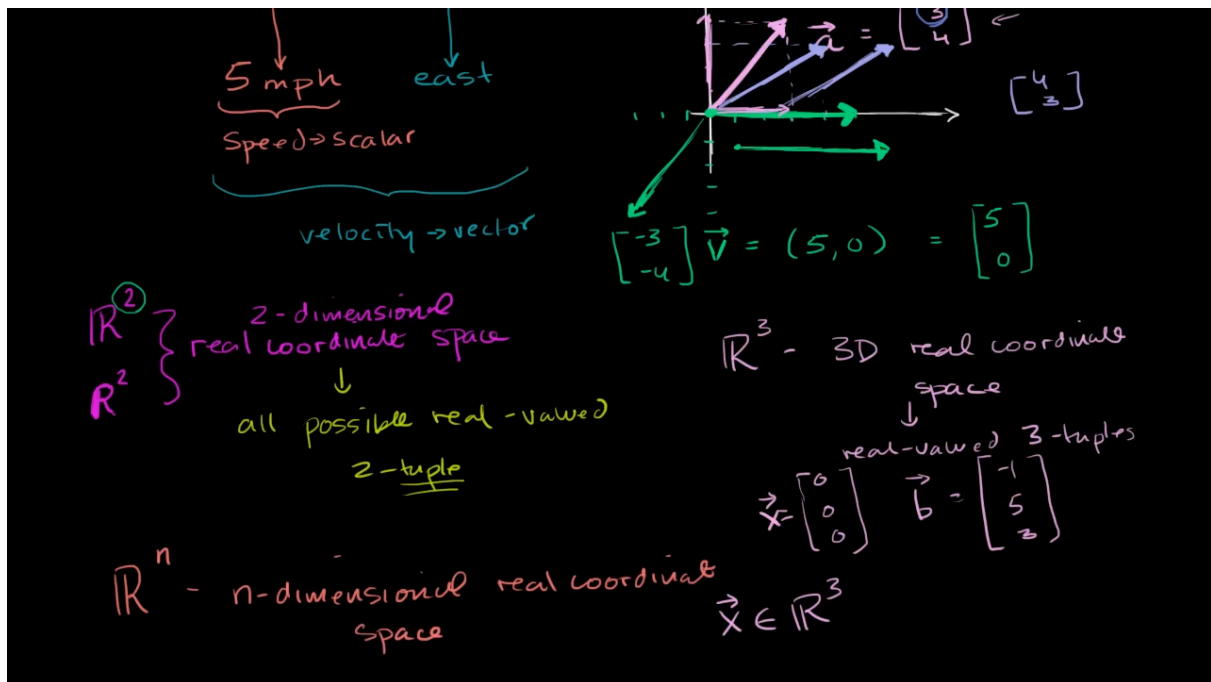 5 mph east
speed→scalar
velocity→vector
a = [3
4]
[4
3]
[-3
-4]
v = (5,0) = [5
0]
ℝ²
R²
2-dimensional
real coordinate space
↓
all possible real-valued
2-tuple
ℝ³ - 3D real coordinate
space
↓
real-valued 3-tuples
x⃗=[0
0
0]
b⃗ = [-1
5
3]
x⃗ ∈ ℝ³
ℝⁿ - n-dimensional real coordinat
space